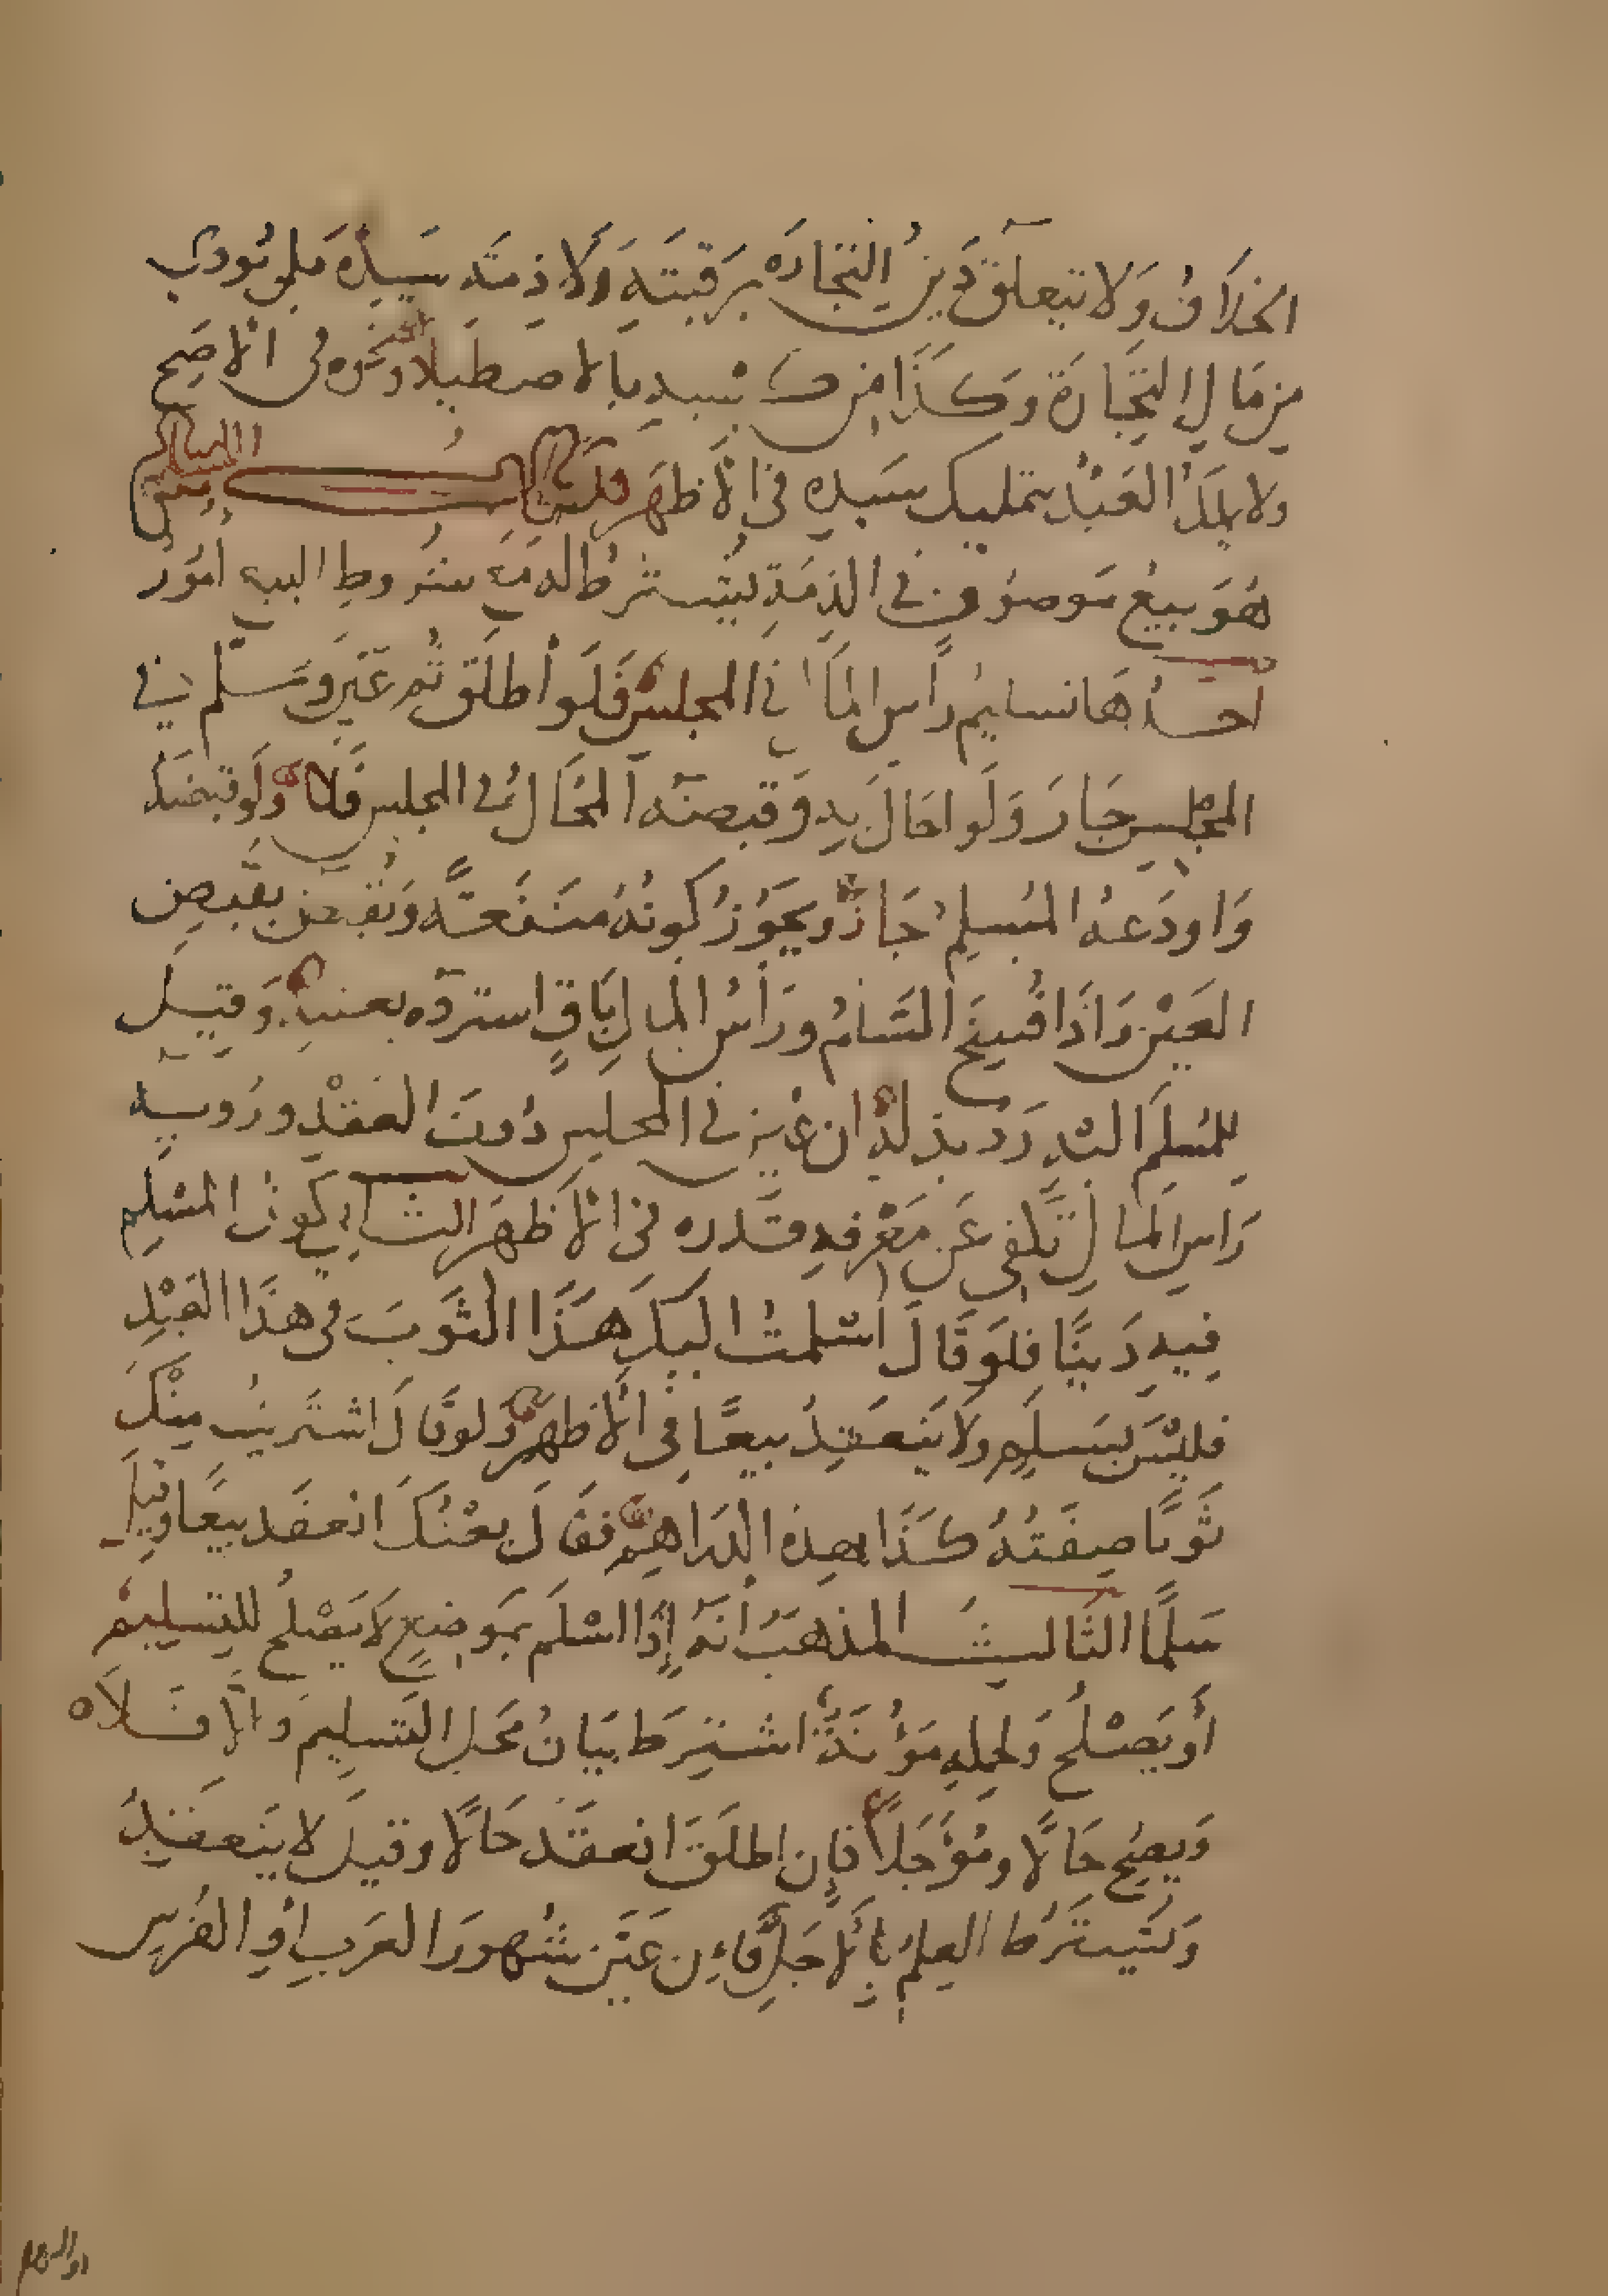 الخلاف وَلا تتعلق دَين التجارة برَقبتهِ وَلا ذِمتهِ سَيده بَل يُودي
من مَال التجَارَة وَكَذَا من كسبهِ بالاصطياد ونحوه فى الاصَح
ولا يملك العَبْدُ بتمليك سَيده في الاظهَر كتاب السلم
هُوَ بيعُ مَوصوُف في الذمَةِ يُشترطُ له مع شروطِ البيع امُوُر
احدُهَا تسليمُ رَاس المال في المجلس فَلَو اطلَق ثم عَيَن وَسَلم في
المجلس جَاز وَلَو احَالَ بهِ وَقبضَهُ المحَال في المجلس فَلا وَلَو قبضَهُ
وَاودَعهُ المُسلِم جَاز ويجَوُزُ كونُهُ مَنفَعَةً وَتُقبَض بقَبض
العَيْن وَاذَا فُسِخَ السَّلمُ ورَأسُ المَالِ بَاقٍ استردَّه بعَينهِ وَقيلَ
للمُسلَمِ اليهِ رَدُّ بدَلهِ ان عُيّن في المجلس دُونَ العَقْدِ ورُويةُ
رَاسِ المال تكفي عَن مَعْرفةِ قَدَره في الاظهَر الثاني كونُ المُسْلَم
فِيهِ دَينًا فلَو قَالَ اسْلمتُ اليكَ هَذَا الثَوبَ في هذَا العَبْدِ
فليْسَ بسَلمٍ ولَا يَنعَقِدُ بيعًا في الاظهرِ وَلو قَالَ اشتَريتُ مِنْكَ
ثَوبًا صِفَتُهُ كَذَا بهذهِ الدرَاهِم فقَالَ بعْتُكَ انعَقَد بيعًا وقيل
سَلمًا الثالث المذهَبُ أنهُ إذا اسْلَم بمَوضعٍ لَا يَصْلحُ للتسليم
أَو يَصْلُح وَلحملهِ مَؤُنَةٌ اشترطَ بيَانُ مَحَل التسليم وَالا فَلاَ
وَيصحُ حَالًا ومُؤَجَلاً فإن اطلَقَ انعقَدَ حَالًا وقيلَ لا يَنعقدُ
وَيُشترَطُ العِلمُ بالأجَلِ فَإن عَيَّن شُهورَ العَرَبِ اوِ الفُرسِ
او الروم